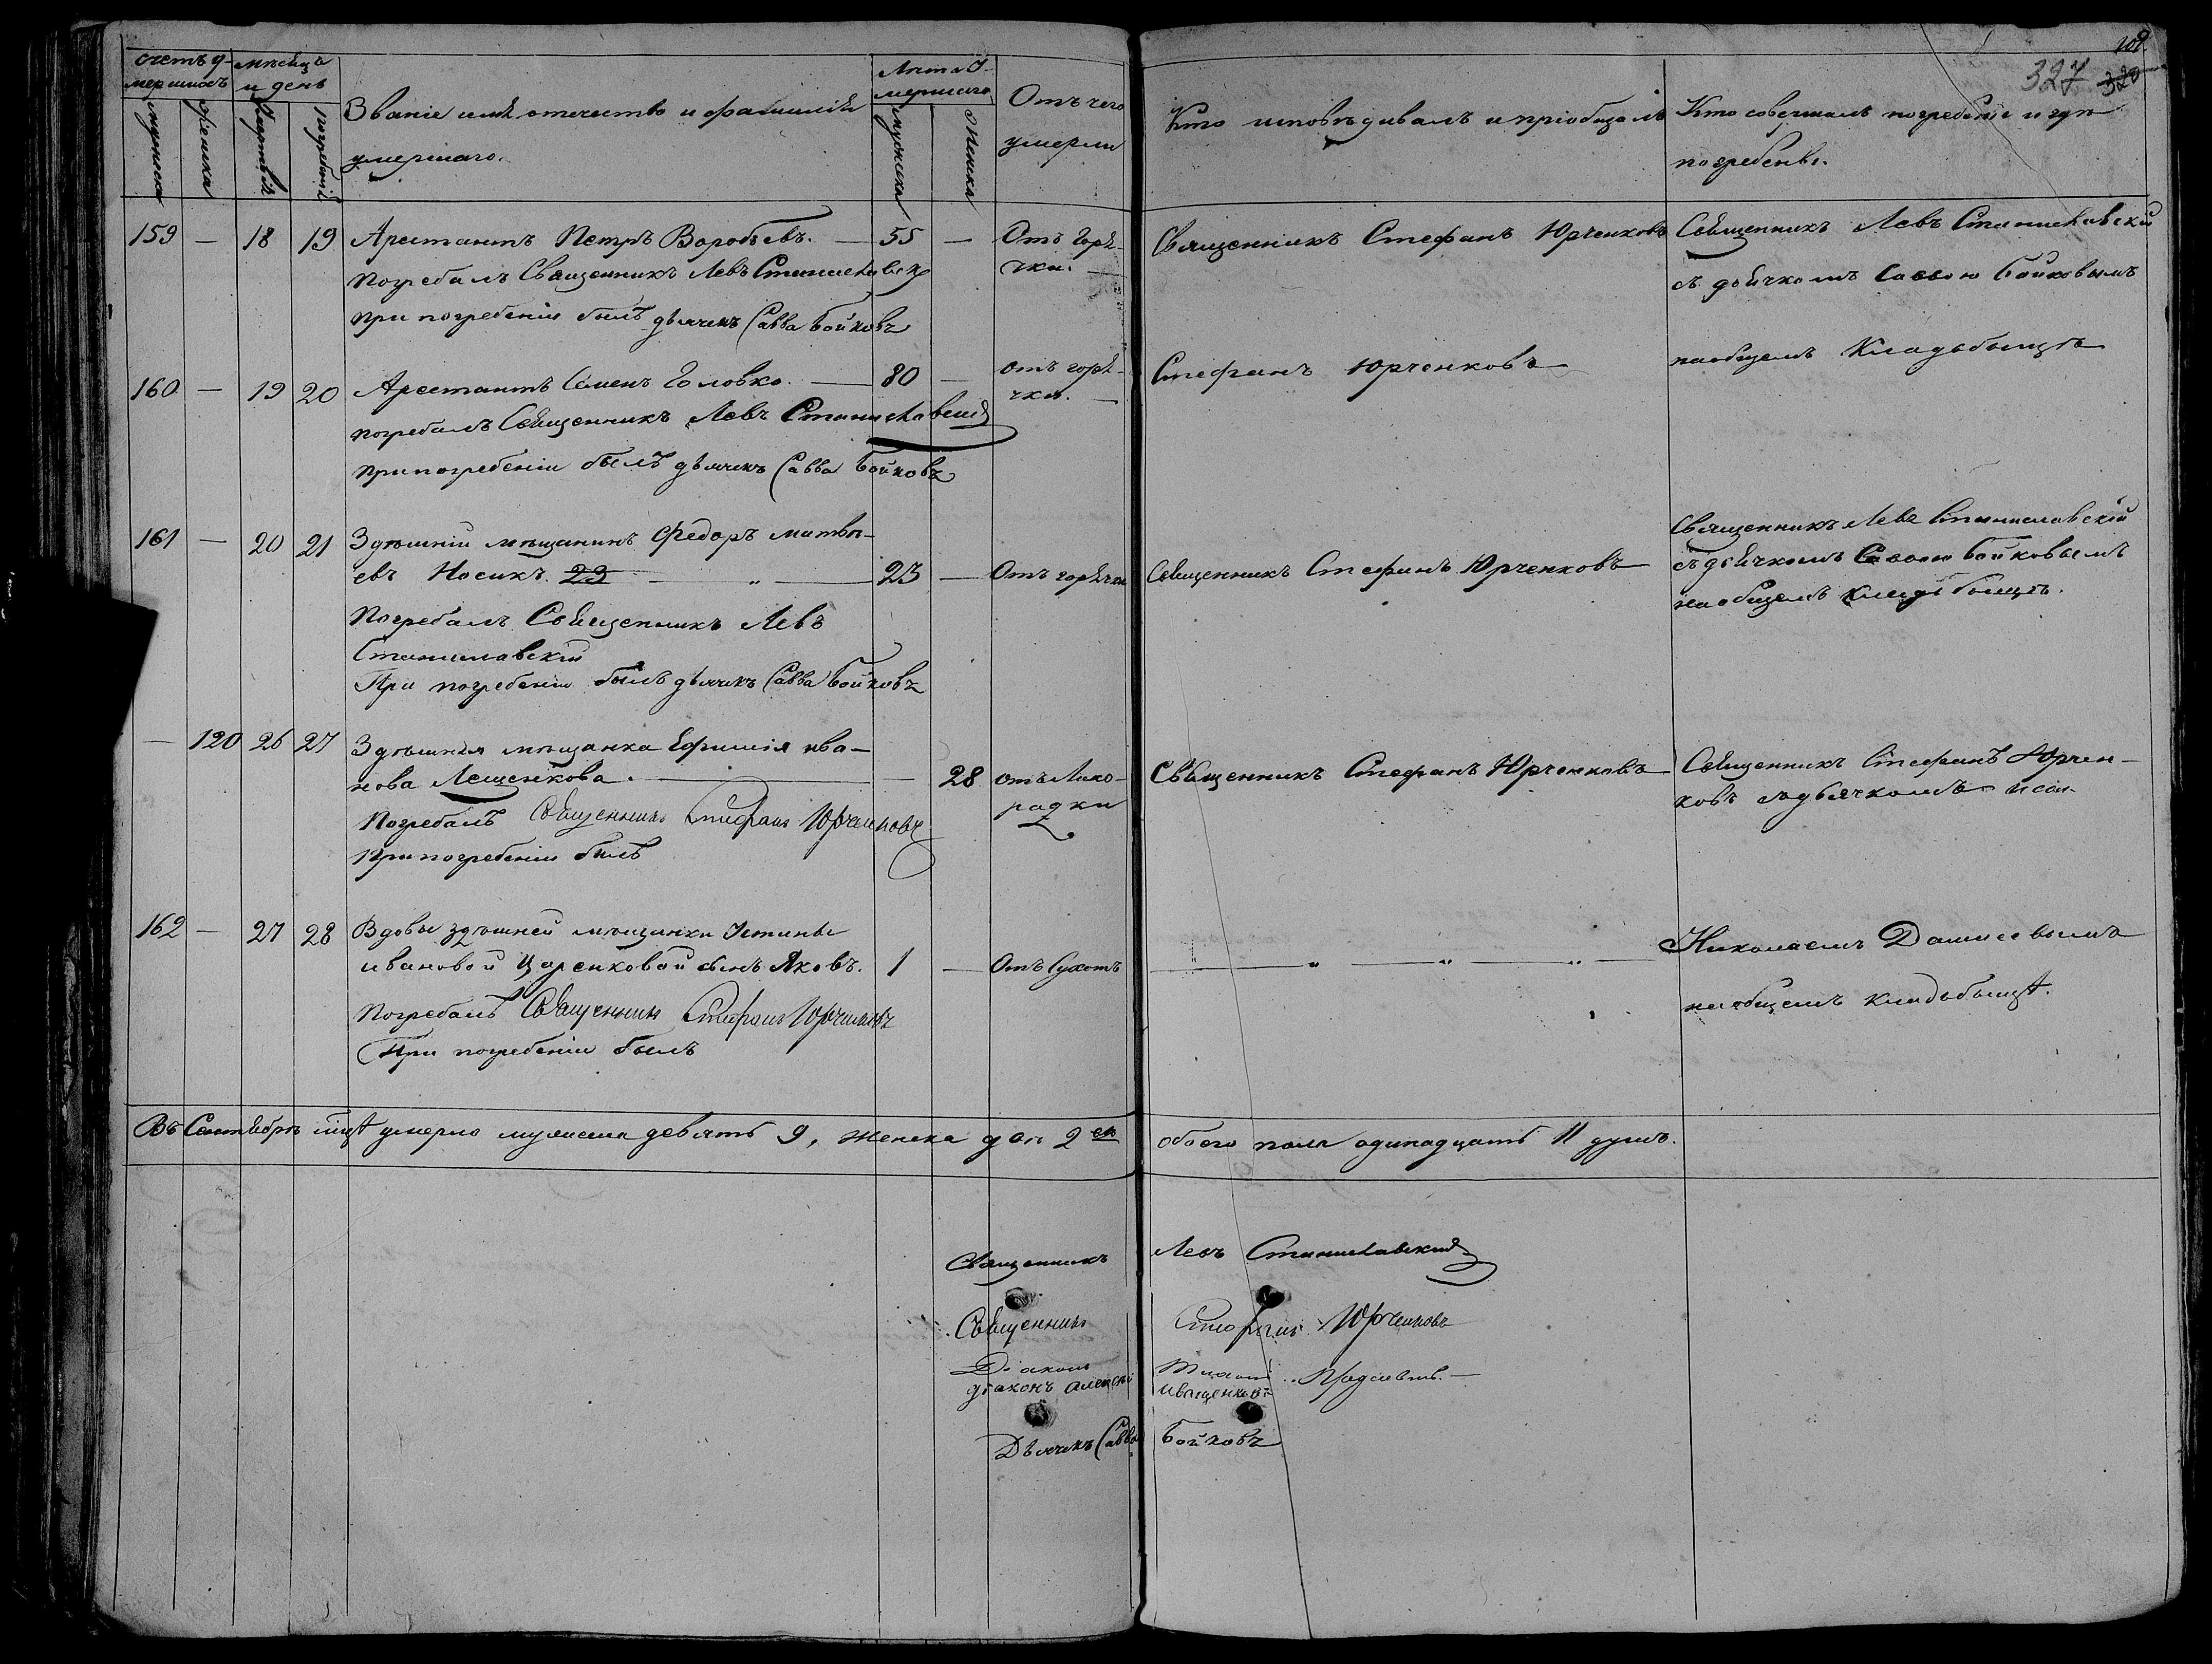 счетъ у-
мершихъ
мѣсяцъ
и день
Званіе имя отечество и фамилія
умершаго.
Лѣта У-
мершаго
Отъ чего
умерли
Кто исповѣдивалъ и пріобщалъ
Кто совершалъ погребеніе и гдѣ
погребены.
327 320
мужеска
женска
Смерти
погребенія
мужеска
женска
159 — 18 19 Арестантъ Петръ Воробьевъ. — 55 — Отъ Горя-
чки. —
Священникъ Стефанъ Юрченковъ
Священникъ Левъ Станиславскій
съ дьячкомъ Саввою Бойковымъ
Погребалъ Священникъ Левъ Станиславскій
при погребеніи былъ дьячекъ Савва Бойковъ
160 — 19 20 Арестантъ Семенъ Головко. — 80 — отъ горя-
чки. —
Стефанъ Юрченковъ
на общемъ Кладбыщѣ
погребалъ Священникъ Левъ Станиславскій
при погребеніи былъ дьячекъ Савва Бойковъ
161 — 20 21 Здѣшній мѣщанинъ Федоръ матвѣ-
евъ Носикъ. 23 — „ — 23 — Отъ горячки
Священникъ Стефанъ Юрченковъ
Священникъ Левъ Станиславскій
съ дьячкомъ Саввою Бойковымъ
на общемъ кладбыщѣ.
Погребалъ Священникъ Левъ
Станиславскій
При погребеніи былъ дьячекъ Савва Бойковъ
— 120 26 27 Здѣшняя мѣщанка Ефимія ива-
нова Лещенкова. — — 28 отъ Лихо-
радки
Священникъ Стефанъ Юрченковъ
Священникъ Стефанъ Юрчен-
ковъ съ дьячкомъ
Погребалъ Священникъ Стефанъ Юрченковъ
При погребеніи былъ
162 — 27 28 Вдовы здѣшней мѣщанки Устины
ивановой Царенковой сынъ Яковъ. 1 — Отъ Сухотъ
— „ — „ — „ —
Николаемъ
на общемъ кладбыщѣ.
Погребалъ Священникъ Стефанъ Юрченковъ
При погребеніи былъ
Въ Сентябрѣ мцѣ умерло мужеска девять 9, женска двѣ 2 обоего пола одинадцать 11 душъ.
Священникъ Левъ Станиславскій
Священникъ Стефанъ Юрченковъ
Діаконъ
дьяконъ Алексѣй Иващенковъ
Дьячекъ Савва Бойковъ